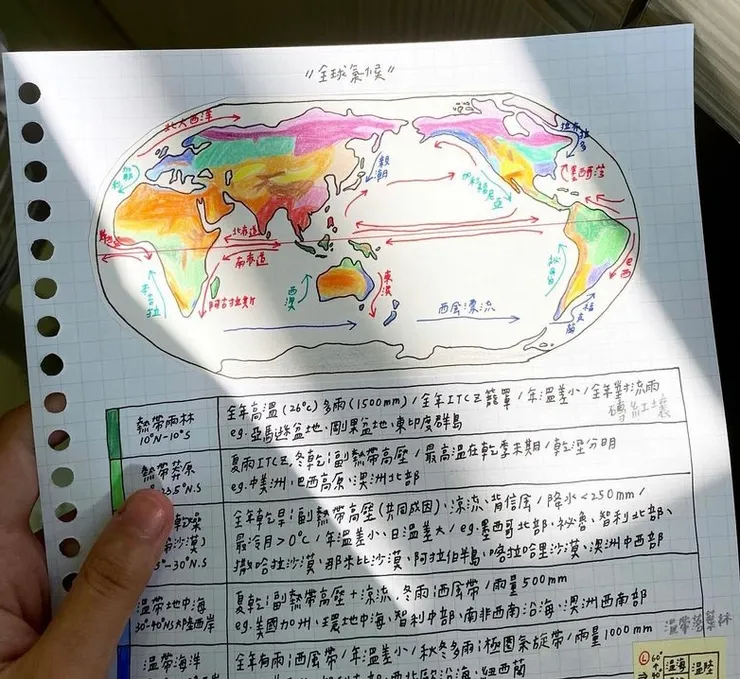 "全球氣候"
北大西洋
拉布拉多
親潮
加利福尼亞
墨西哥灣
北赤道
南赤道
本吉拉
阿古拉斯
西澳
東澳
西風漂流
秘魯
巴西
福克蘭
熱帶雨林
10°N-10°S
全年高溫(26°C)多雨(1500mm)/全年ITCZ籠罩/年溫差小/全年對流雨
磚紅壤
eg.亞馬遜盆地、剛果盆地、東印度群島
熱帶莽原
23.5°N.S
夏雨ITCZ,冬乾;副熱帶高壓/最高溫在乾季末期/乾溼分明
eg.中美洲、巴西高原、澳洲北部
乾燥
沙漠)
-30°N.S
全年乾旱;副熱帶高壓(共同成因)、涼流、背信風/降水<250mm/
最冷月>0°C/年溫差小、日溫差大/eg.墨西哥北部、秘魯、智利北部、
撒哈拉沙漠、那米比沙漠、阿拉伯半島、喀拉哈里沙漠、澳洲中西部
溫帶地中海
30°-40°N.S大陸西岸
夏乾;副熱帶高壓+涼流、冬雨西風帶/雨量500mm
eg.美國加州、環地中海、智利中部、南非西南沿海、澳洲西南部
溫帶落葉林
溫帶海洋
全年有雨;西風帶/年溫差小/秋冬多雨;極圈氣旋帶/雨量1000mm
西北歐沿海、紐西蘭
60°
溫海
溫陸